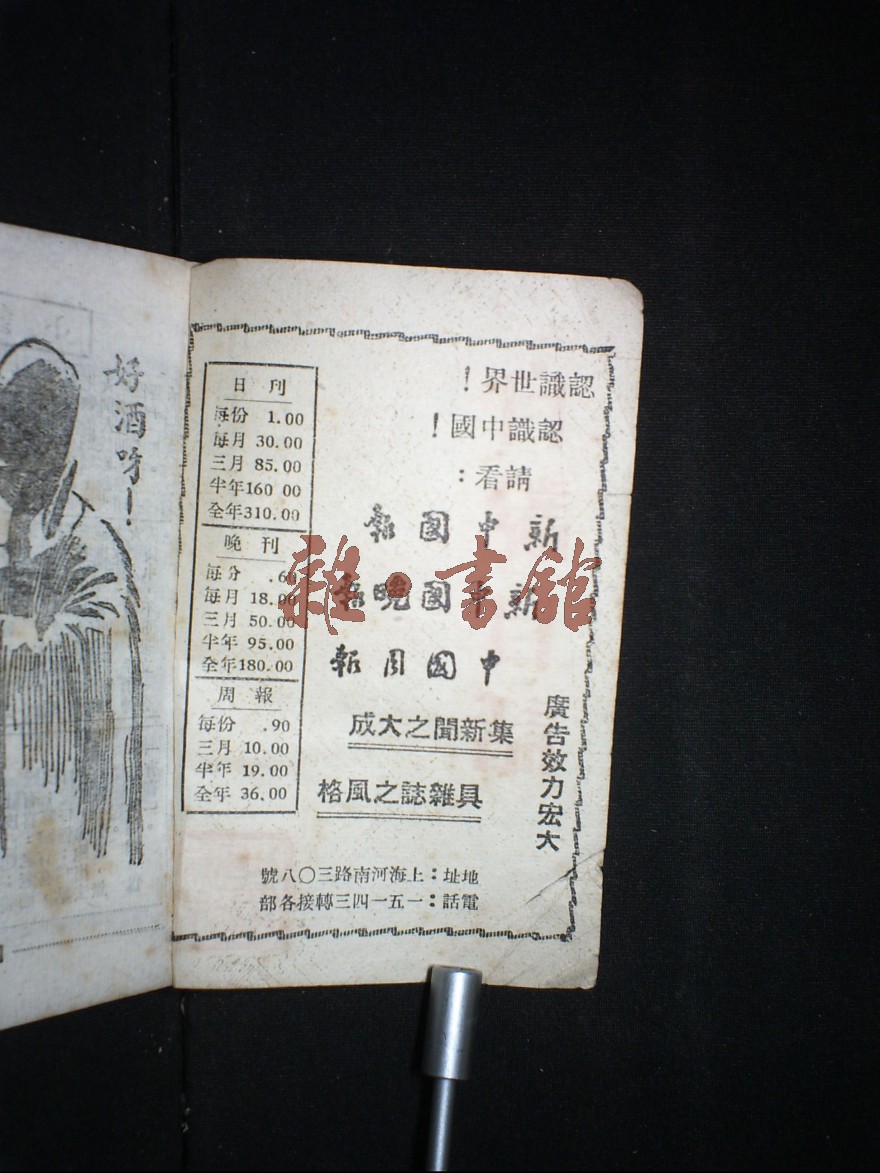 認識世界！
認識中國！
請看：
新中國報
新中國晚報
中國周報
集新聞之大成
具雜誌之風格
廣告效力宏大
地址：上海河南路三〇八號
電話：一五一四三轉接各部
日刊
每份 1.00
每月 30.00
三月 85.00
半年160 00
全年310.00
晚刊
每分 .60
每月 18.00
三月 50.00
半年 95.00
全年180.00
周報
每份 .90
三月 10.00
半年 19.00
全年 36.00
好酒呀！
雜·書館